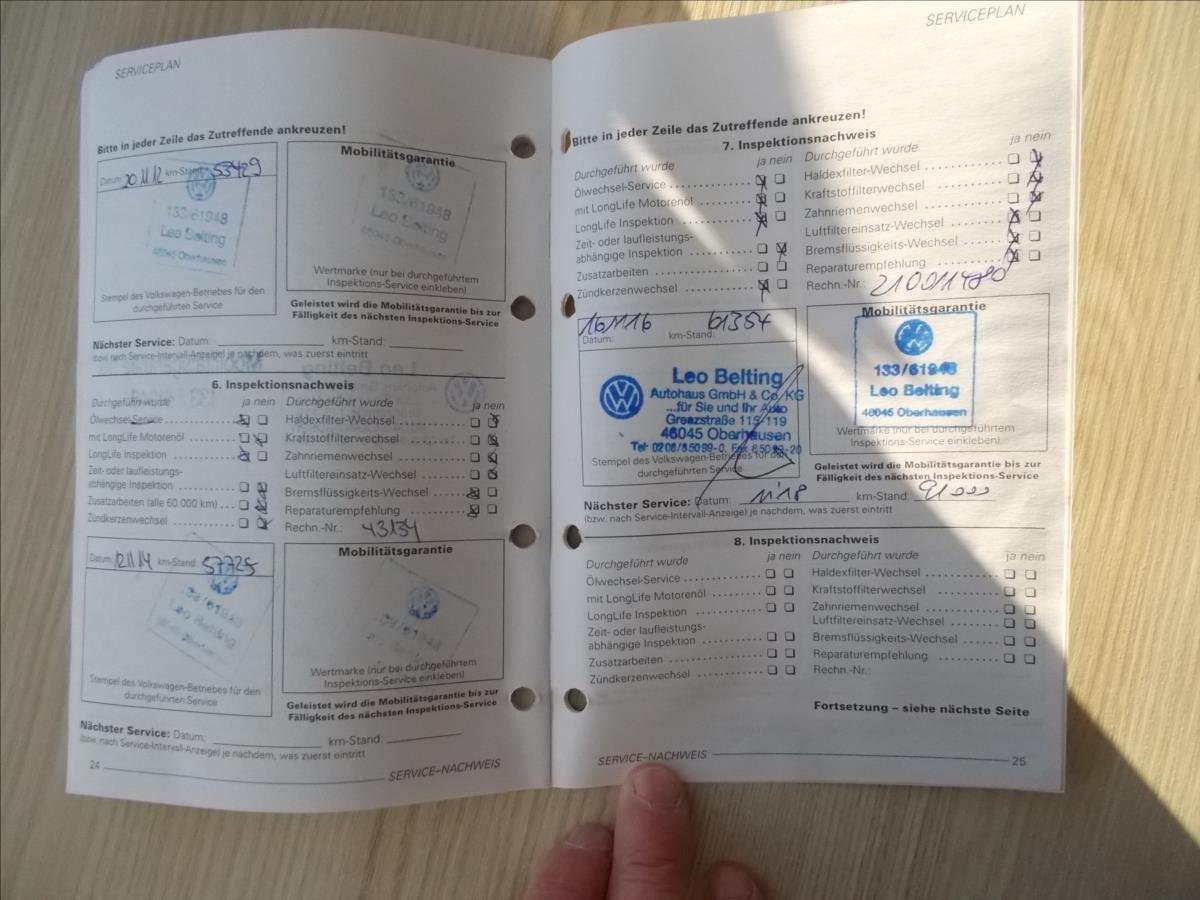 SERVICEPLAN
Bitte in jeder Zeile das Zutreffende ankreuzen!
Datum: 20.11.12 km-Stand: 53429
133/61948
Leo Belting
46045 Oberhausen
Stempel des Volkswagen-Betriebes für den
durchgeführten Service
Mobilitätsgarantie
133/61948
Leo Belting
46045 Oberhausen
Wertmarke (nur bei durchgeführtem
Inspektions-Service einkleben)
Geleistet wird die Mobilitätsgarantie bis zur
Fälligkeit des nächsten Inspektions-Service
Nächster Service: Datum: km-Stand:
(bzw. nach Service-Intervall-Anzeige) je nachdem, was zuerst eintritt
6. Inspektionsnachweis
Durchgeführt wurde ja nein
Ölwechsel-Service
mit LongLife Motorenöl
LongLife Inspektion
Zeit- oder laufleistungs-
abhängige Inspektion
Zusatzarbeiten (alle 60.000 km)
Zündkerzenwechsel
Durchgeführt wurde ja nein
Haldexfilter-Wechsel
Kraftstoffilterwechsel
Zahnriemenwechsel
Luftfiltereinsatz-Wechsel
Bremsflüssigkeits-Wechsel
Reparaturempfehlung
Rechn.-Nr.: 43134
Datum: 12.11.14 km-Stand: 57725
133/61948
Leo Belting
Stempel des Volkswagen-Betriebes für den
durchgeführten Service
Mobilitätsgarantie
Wertmarke (nur bei durchgeführtem
Inspektions-Service einkleben)
Geleistet wird die Mobilitätsgarantie bis zur
Fälligkeit des nächsten Inspektions-Service
Nächster Service: Datum: km-Stand:
(bzw. nach Service-Intervall-Anzeige) je nachdem, was zuerst eintritt
24 SERVICE–NACHWEIS
SERVICEPLAN
Bitte in jeder Zeile das Zutreffende ankreuzen!
7. Inspektionsnachweis
Durchgeführt wurde ja nein
Ölwechsel-Service
mit LongLife Motorenöl
LongLife Inspektion
Zeit- oder laufleistungs-
abhängige Inspektion
Zusatzarbeiten
Zündkerzenwechsel
Durchgeführt wurde ja nein
Haldexfilter-Wechsel
Kraftstoffilterwechsel
Zahnriemenwechsel
Luftfiltereinsatz-Wechsel
Bremsflüssigkeits-Wechsel
Reparaturempfehlung
Rechn.-Nr.: 210011480
16.11.16 61354
Datum: km-Stand:
Leo Belting
Autohaus GmbH & Co. KG
...für Sie und Ihr Auto
Grenzstraße 115-119
46045 Oberhausen
Tel. 0208/85099-0, Fax 85099-20
Stempel des Volkswagen-Betriebes für den
durchgeführten Service
Mobilitätsgarantie
133/61948
Leo Belting
46045 Oberhausen
Wertmarke (nur bei durchgeführtem
Inspektions-Service einkleben)
Geleistet wird die Mobilitätsgarantie bis zur
Fälligkeit des nächsten Inspektions-Service
Nächster Service: Datum: 11.18 km-Stand: 91000
(bzw. nach Service-Intervall-Anzeige) je nachdem, was zuerst eintritt
8. Inspektionsnachweis
Durchgeführt wurde ja nein
Ölwechsel-Service
mit LongLife Motorenöl
LongLife Inspektion
Zeit- oder laufleistungs-
abhängige Inspektion
Zusatzarbeiten
Zündkerzenwechsel
Durchgeführt wurde ja nein
Haldexfilter-Wechsel
Kraftstoffilterwechsel
Zahnriemenwechsel
Luftfiltereinsatz-Wechsel
Bremsflüssigkeits-Wechsel
Reparaturempfehlung
Rechn.-Nr.:
Fortsetzung – siehe nächste Seite
SERVICE–NACHWEIS 25